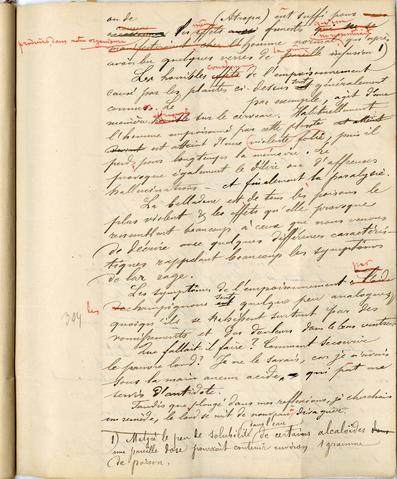 ou de (Atropa) eût suffi pour
produire dans notre organisme
des effets funestes
chez l'homme normal qui après
avoir bu quelques verres de pareille infusion 1)
Les horribles effets de l'empoisonnement
causé par les plantes ci-dessus sont généralement
connus. Le par exemple, agit d'une
manière sur le cerveau. Habituellement
l'homme empoisonné par cette plante
est atteint d'une violente folie, puis il
perd pour longtemps la mémoire. Le
provoque également le délire ou d'affreuses
hallucinations — et finalement la paralysie.
La belladone est de tous les poisons le
plus violent & les effets qu'elle provoque
ressemblent beaucoup à ceux que nous venons
de décrire avec quelques différences caractéris-
tiques rappelant beaucoup les symptômes
de la rage.
Les symptômes de l'empoisonnement par
les champignons sont quelque peu analogues,
quoiqu'ils se trahissent surtout par des
vomissements et des douleurs dans le bas ventre.
304
Que fallait il faire? Comment secourir
le pauvre lord? Je ne le savais, car je n'avais
sous la main aucun acide, qui put me
servir d'antidote.
Tandis que plongé dans mes réflexions, je cherchais
un remède, le lord se mit de nouveau à divaguer.
1) Malgré le peu de solubilité dans l'eau de certains alcaloïdes
une pareille dose pourrait contenir environ 1 gramme
de poison.